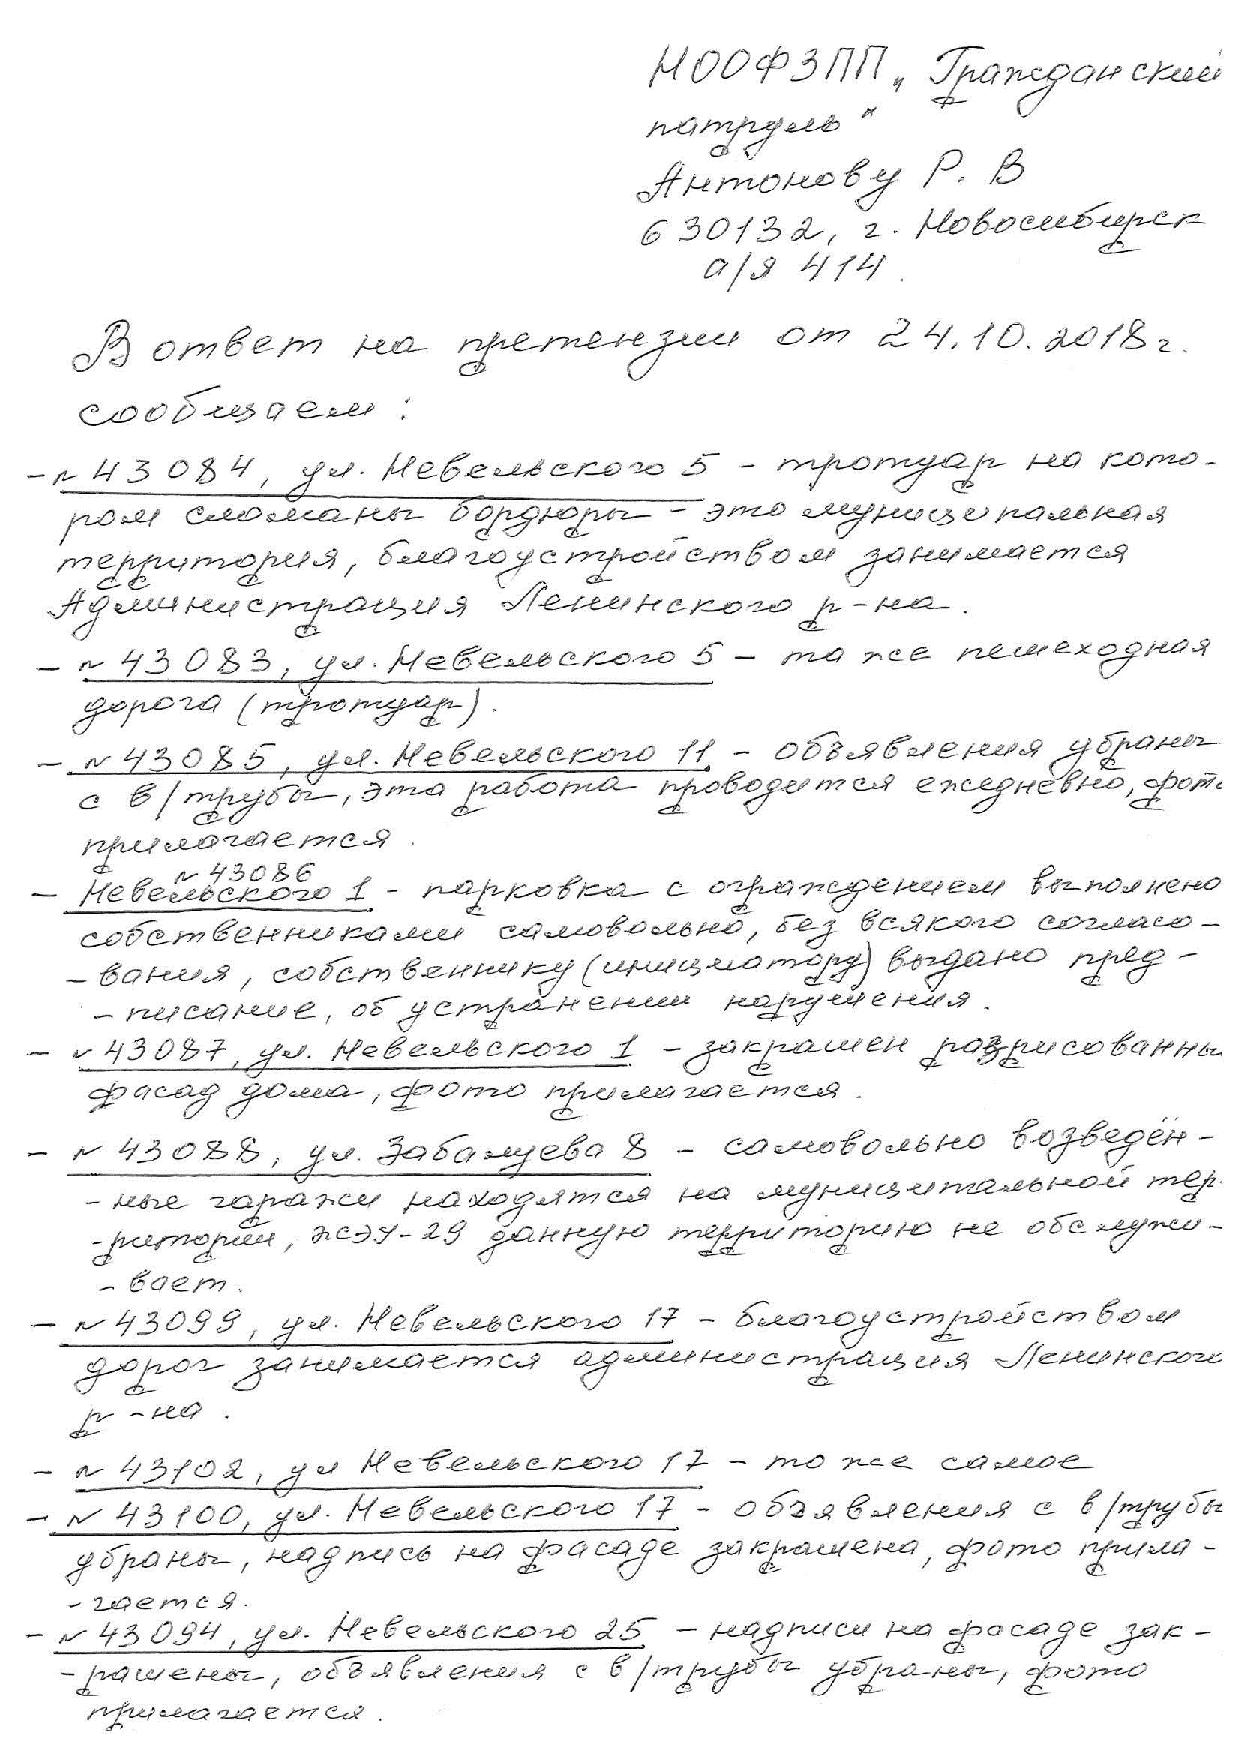 МООФЗПП „Гражданский
патруль"
Антонову Р. В
630132, г. Новосибирск
а/я 414.
В ответ на претензии от 24.10.2018г.
сообщаем:
- № 43084, ул. Невельского 5 - тротуар на кото-
ром сломаны бордюры - это муниципальная
территория, благоустройством занимается
Администрация Ленинского р-на.
- № 43083, ул. Невельского 5 - та же пешеходная
дорога (тротуар).
- № 43085, ул. Невельского 11 - объявления убраны
с в/трубы, эта работа проводится ежедневно, фото
прилагается.
№ 43086
- Невельского 1 - парковка с ограждением выполнено
собственниками самовольно, без всякого согласо-
- вания, собственнику (инициатору) выдано пред-
- писание, об устранении нарушения.
- № 43087, ул. Невельского 1 - закрашен разрисованны
фасад дома, фото прилагается.
- № 43088, ул. Забалуева 8 - самовольно возведён-
- ные гаражи находятся на муниципальной тер-
- ритории, ЖЭУ-29 данную территорию не обслужи-
- вает.
- № 43099, ул. Невельского 17 - благоустройством
дорог занимается администрация Ленинского
р-на.
- № 43102, ул Невельского 17 - то же самое
- № 43100, ул. Невельского 17 - объявления с в/трубы
убраны, надпись на фасаде закрашена, фото прила-
- гается.
- № 43094, ул. Невельского 25 - надписи на фасаде зак-
- рашены, объявления с в/трубы убраны, фото
прилагается.